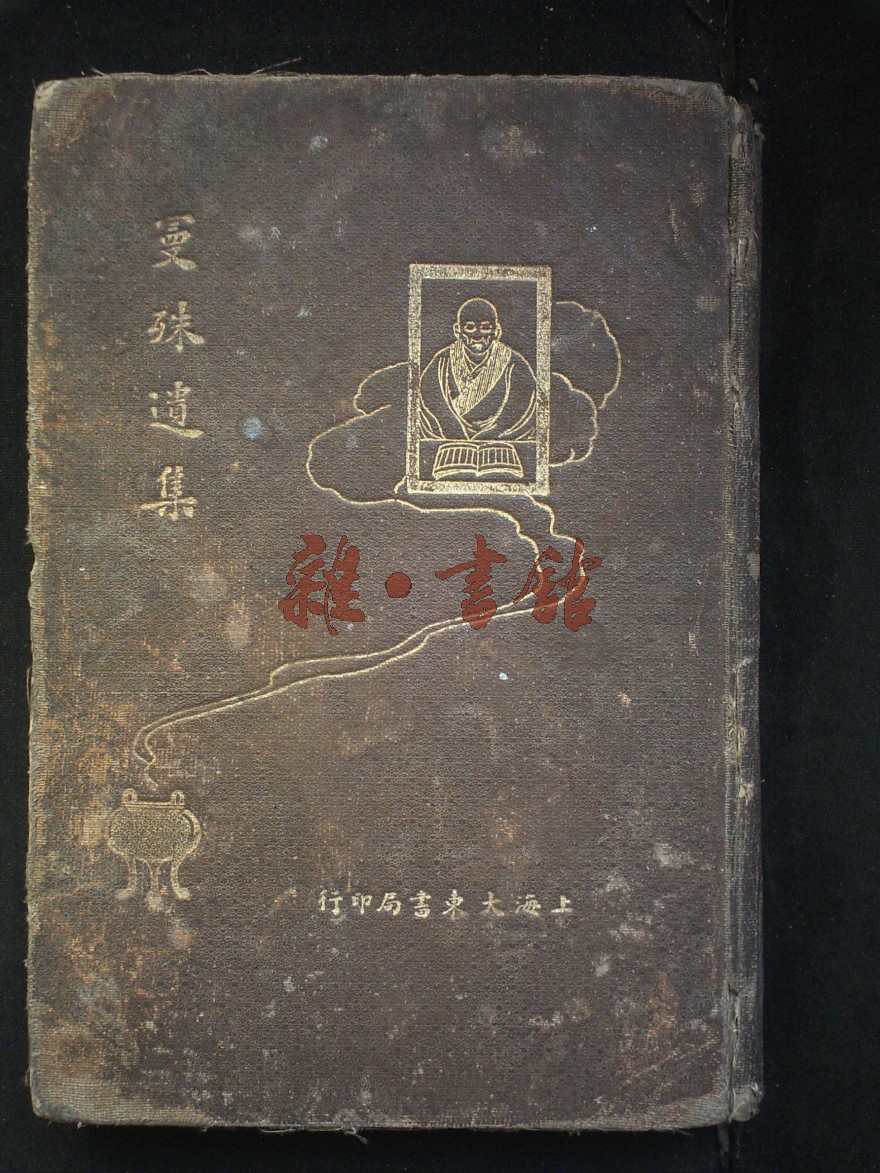 曼殊遺集
雜·書館
上海大東書局印行